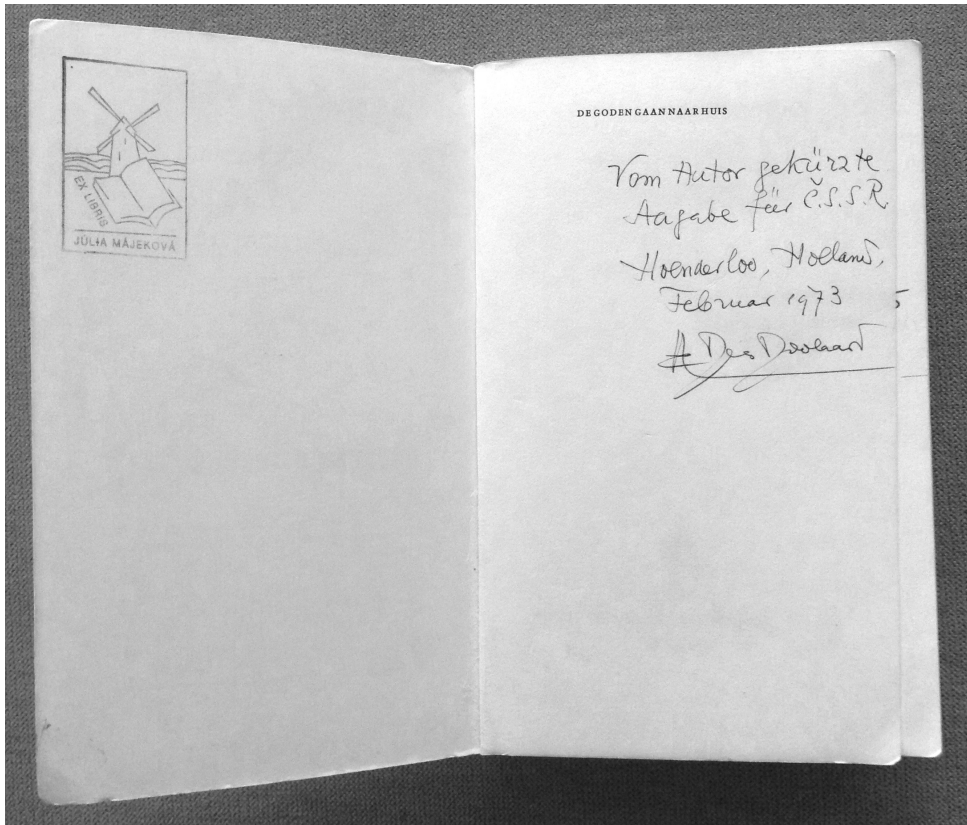 EX LIBRIS
JÚLIA MÁJEKOVÁ
DE GODEN GAAN NAAR HUIS
Vom Autor gekürzte
Aagabe für Č.S.S.R.
Hoenderloo, Holland,
Februar 1973
A Den Doolaard